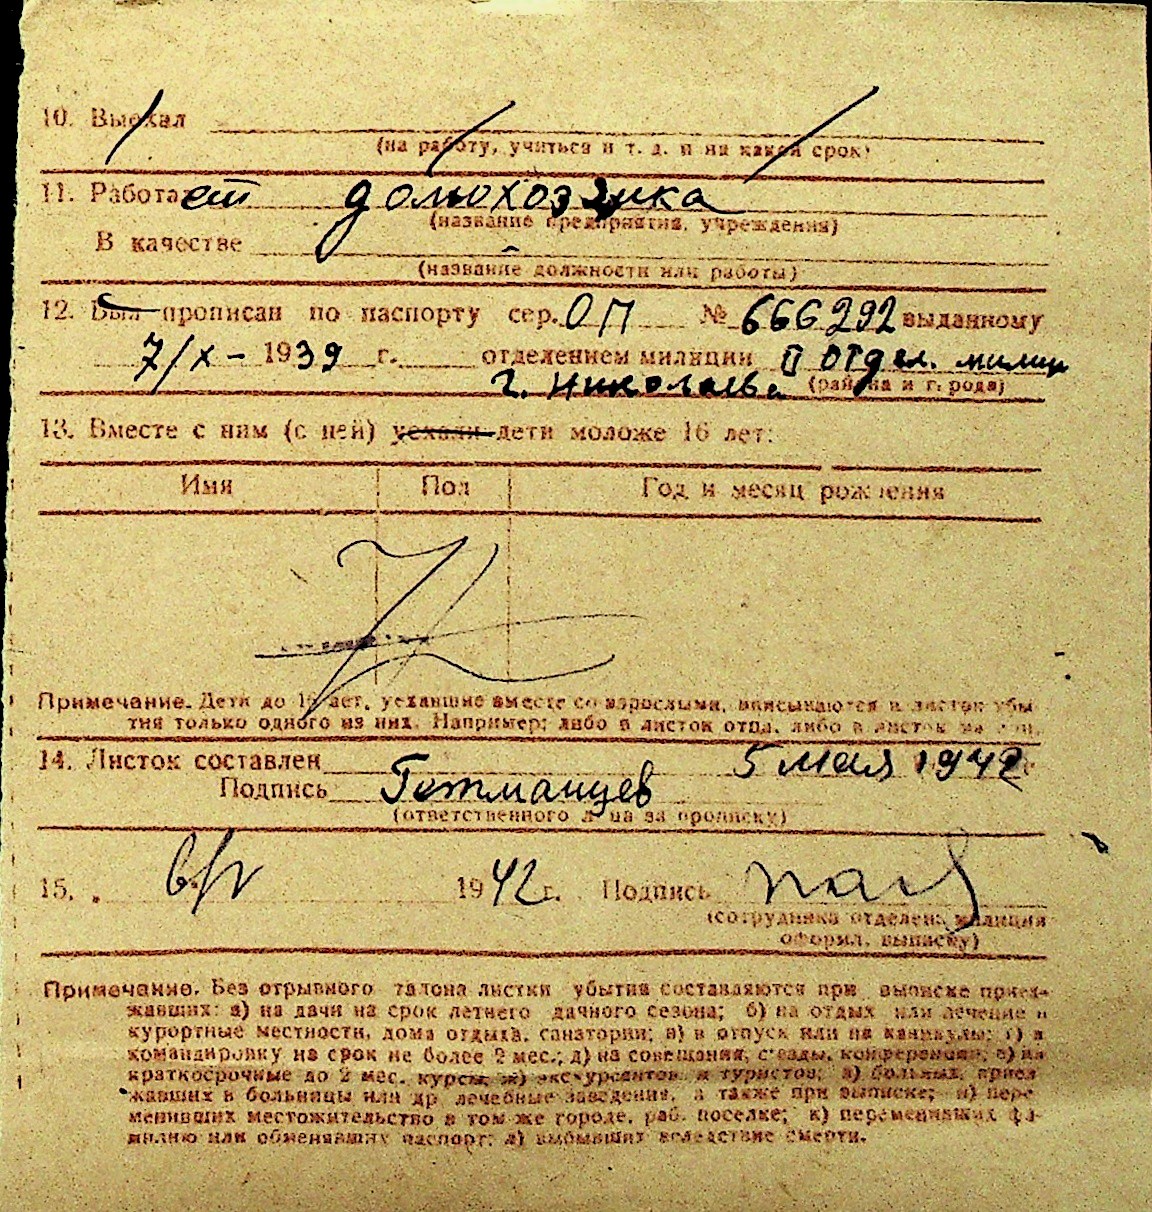 10. Выехал
(на работу, учиться и т. д. и на какой срок)
11. Работает домохозяйка
(название предприятия, учреждения)
В качестве -
(название должности или работы)
12. Был прописан по паспорту сер. ОП № 666292 выданному
7/X - 1939 г. отделением милиции II отдел. милиц
г. Николаева (района и города)
13. Вместе с ним (с ней) уехали дети моложе 16 лет:
Имя Пол Год и месяц рождения
Примечание. Дети до 16 лет, уехавшие вместе со взрослыми, вписываются в листок убы-
тия только одного из них. Например: либо в листок отца, либо в листок
14. Листок составлен 5 мая 1942 г.
Подпись Гетманцев
(ответственного лица за прописку)
15. 1942 г. Подпись
(сотрудника отделения милиции
оформ. выписку)
Примечание. Без отрывного талона листки убытия составляются при выписке приез-
жавших: а) на дачи на срок летнего дачного сезона; б) на отдых или лечение в
курортные местности, дома отдыха, санатории; в) в отпуск или на каникулы; г) в
командировку на срок не более 2 мес.; д) на совещания, съезды, конференции; е) на
краткосрочные до 2 мес. курсы; ж) экскурсантов и туристов; з) больных, приез-
жавших в больницы или др. лечебные заведения, а также при выписке; и) пере-
менивших местожительство в том же городе, раб. поселке; к) переменивших фа-
милию или обменявших паспорт; л) выбывших вследствие смерти.